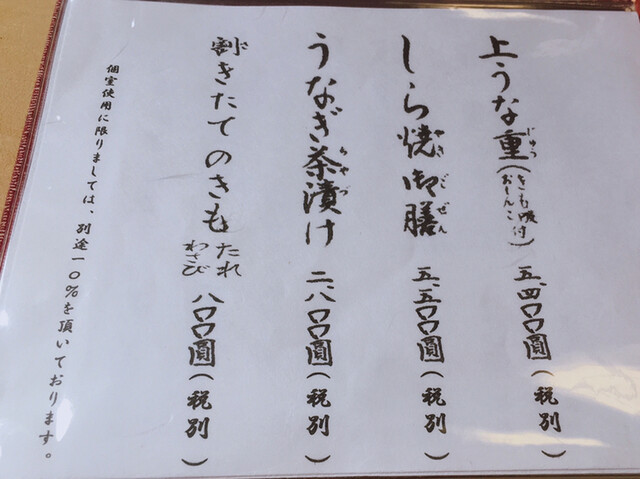 上うな重(きも吸付 おしんこ) 五、四〇〇圓(税別)
じゅう
しら焼御膳 五、五〇〇圓(税別)
やきごぜん
うなぎ茶漬け 二、八〇〇圓(税別)
ちゃづ
割きたてのきも たれ わさび 八〇〇圓(税別)
個室使用に限りましては、別途一〇%を頂いております。